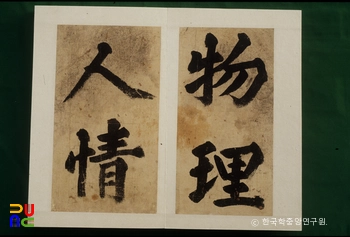 物理
人情
© 한국학중앙연구원.